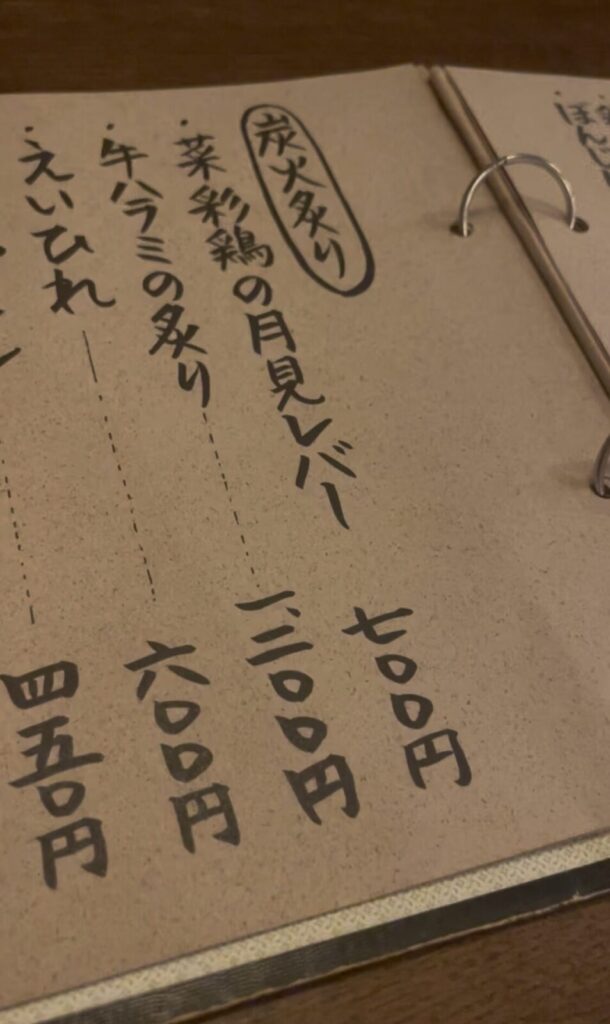 炭火炙り
・菜彩鶏の月見レバー 七〇〇円
・牛ハラミの炙り 一、二〇〇円
・えいひれ 六〇〇円
四五〇円